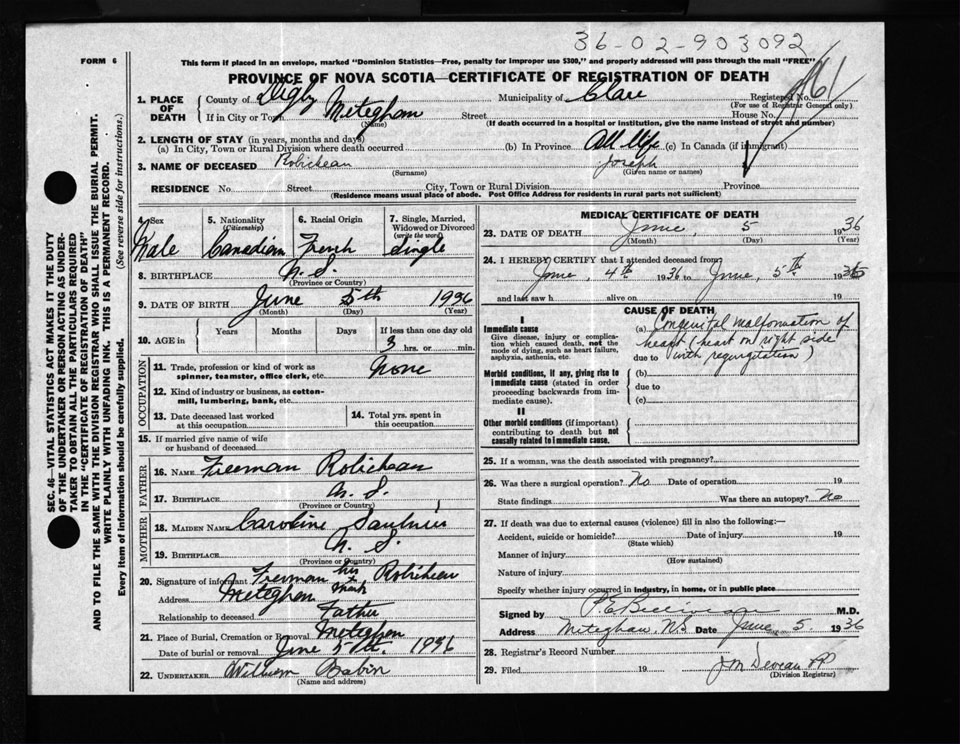 36-02-903092
FORM 6
This form if placed in an envelope, marked "Dominion Statistics—Free, penalty for improper use $300," and properly addressed will pass through the mail "FREE"
PROVINCE OF NOVA SCOTIA—CERTIFICATE OF REGISTRATION OF DEATH
1. PLACE OF DEATH
County of Digby Municipality of Clare Registered No.
(For use of Registrar General only)
If in City or Town Meteghan Street House No.
(Name) (If death occurred in a hospital or institution, give the name instead of street and number)
2. LENGTH OF STAY (in years, months and days)
(a) In City, Town or Rural Division where death occurred (b) In Province All life (c) In Canada (if immigrant)
3. NAME OF DECEASED Robicheau Joseph
(Surname) (Given name or names)
RESIDENCE No. Street City, Town or Rural Division Province
(Residence means usual place of abode. Post Office Address for residents in rural parts not sufficient)
4. Sex 5. Nationality (Citizenship) 6. Racial Origin 7. Single, Married, Widowed or Divorced (write the word)
Male Canadian French Single
8. BIRTHPLACE N.S.
(Province or Country)
9. DATE OF BIRTH June 5th 1936
(Month) (Day) (Year)
10. AGE in Years Months Days If less than one day old
3 hrs. or min.
OCCUPATION
11. Trade, profession or kind of work as spinner, teamster, office clerk, etc. None
12. Kind of industry or business, as cotton-mill, lumbering, bank, etc.
13. Date deceased last worked at this occupation 14. Total yrs. spent in this occupation
15. If married give name of wife or husband of deceased
FATHER
16. NAME Freeman Robicheau
17. BIRTHPLACE N.S.
(Province or Country)
MOTHER
18. MAIDEN NAME Caroline Saulnier
19. BIRTHPLACE N.S.
(Province or Country)
20. Signature of informant Freeman his x mark Robicheau
Address Meteghan
Relationship to deceased Father
21. Place of Burial, Cremation or Removal Meteghan
Date of burial or removal June 5th. 1936
22. UNDERTAKER William Babin
(Name and address)
MEDICAL CERTIFICATE OF DEATH
23. DATE OF DEATH June, 5 1936
(Month) (Day) (Year)
24. I HEREBY CERTIFY that I attended deceased from
June, 4th 1936 to June, 5th 1936
and last saw h alive on 19
CAUSE OF DEATH
I
Immediate cause
Give disease, injury or complication which caused death, not the mode of dying, such as heart failure, asphyxia, asthenia, etc.
(a) Congenital malformation of
heart (heart on right side
due to with regurgitation)
Morbid conditions, if any, giving rise to immediate cause (stated in order proceeding backwards from immediate cause).
(b)
due to
(c)
II
Other morbid conditions (if important) contributing to death but not causally related to immediate cause.
25. If a woman, was the death associated with pregnancy?
26. Was there a surgical operation? No Date of operation 19
State findings Was there an autopsy? No
27. If death was due to external causes (violence) fill in also the following:—
Accident, suicide or homicide? Date of injury 19
(State which)
Manner of injury
(How sustained)
Nature of injury
Specify whether injury occurred in industry, in home, or in public place
Signed by M.D.
Address Meteghan, N.S. Date June 5. 1936
28. Registrar's Record Number
29. Filed 19
(Division Registrar)
SEC. 46—VITAL STATISTICS ACT MAKES IT THE DUTY
OF THE UNDERTAKER OR PERSON ACTING AS UNDER-
TAKER TO OBTAIN ALL THE PARTICULARS REQUIRED
IN THE "CERTIFICATE OF REGISTRATION OF DEATH"
AND TO FILE THE SAME WITH THE DIVISION REGISTRAR WHO SHALL ISSUE THE BURIAL PERMIT.
WRITE PLAINLY WITH UNFADING INK. THIS IS A PERMANENT RECORD.
Every item of information should be carefully supplied. (See reverse side for instructions.)